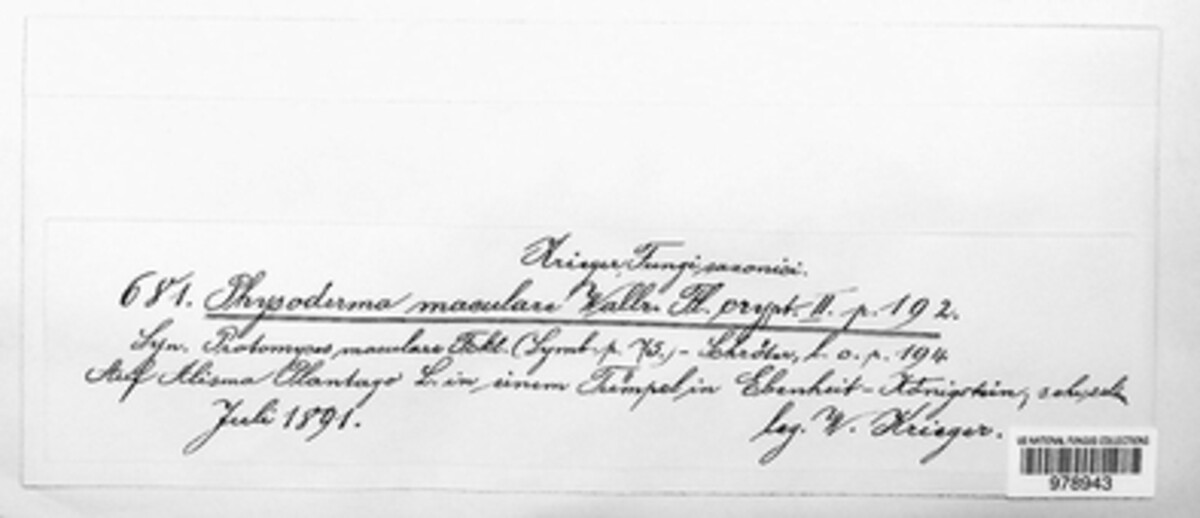 Krieger, Fungi saxonici.
681. Physoderma maculare Wallr. Fl. crypt. II. p. 192.
Syn. Protomyces maculare Fckl. (Symb. p. 75.) - Schröter, l. c. p. 194
Auf Alisma Plantago L. in einem Tümpel in Ebenheit - Königstein,
Juli 1891.
leg. W. Krieger.
US NATIONAL FUNGUS COLLECTIONS
978943